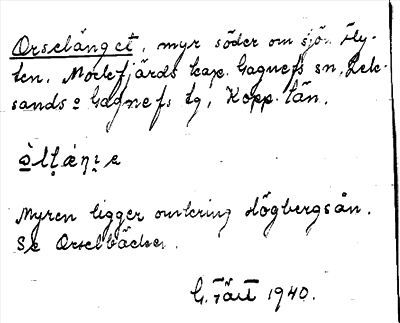 Orselänget, myr söder om sjön Fly-
ten. Mockfjärds kap. Gagnefs sn, Lek-
sands o Gagnefs tg, Kopp. län.
Myren ligger omkring Högbergsån.
Se Orselbäcken.
G. 1940.